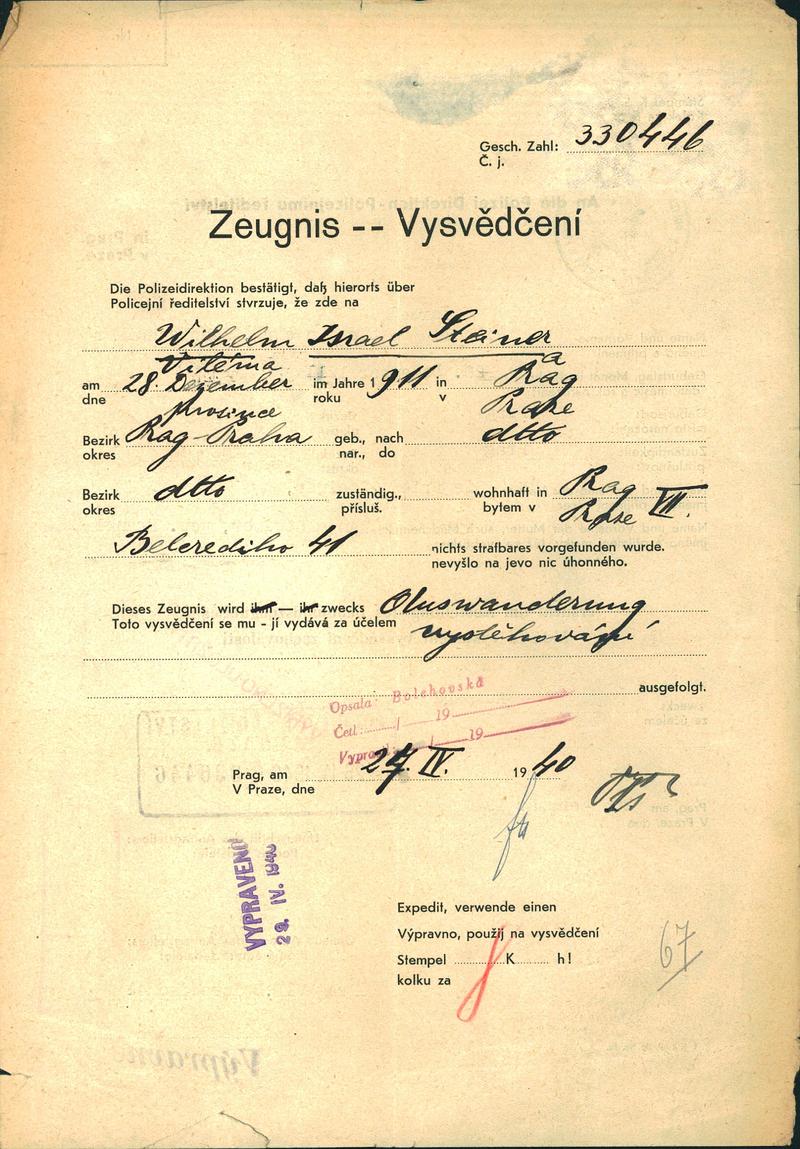 Gesch. Zahl: 330446
Č. j.
Zeugnis -- Vysvědčení
Die Polizeidirektion bestätigt, daß hierorts über
Policejní ředitelství stvrzuje, že zde na
Wilhelm Israel Steiner
Viléma a
am 28. Dezember im Jahre 1911 in Prag
dne prosince roku v Praze
Bezirk Prag-Praha geb., nach dtto
okres nar., do
Bezirk dtto zuständig., wohnhaft in Prag VII.
okres přísluš. bytem v Praze
Belcrediho 41 nichts strafbares vorgefunden wurde.
nevyšlo na jevo nic úhonného.
Dieses Zeugnis wird ihm — ihr zwecks Auswanderung
Toto vysvědčení se mu - jí vydává za účelem vystěhování
ausgefolgt.
Opsala: Bolehovská
Četl: / 19
Vypravil: / 19
Prag, am 27. IV. 1940
V Praze, dne
VYPRAVENO
29. IV. 1940
Expedit, verwende einen
Výpravno, použij na vysvědčení
Stempel K h!
kolku za
67